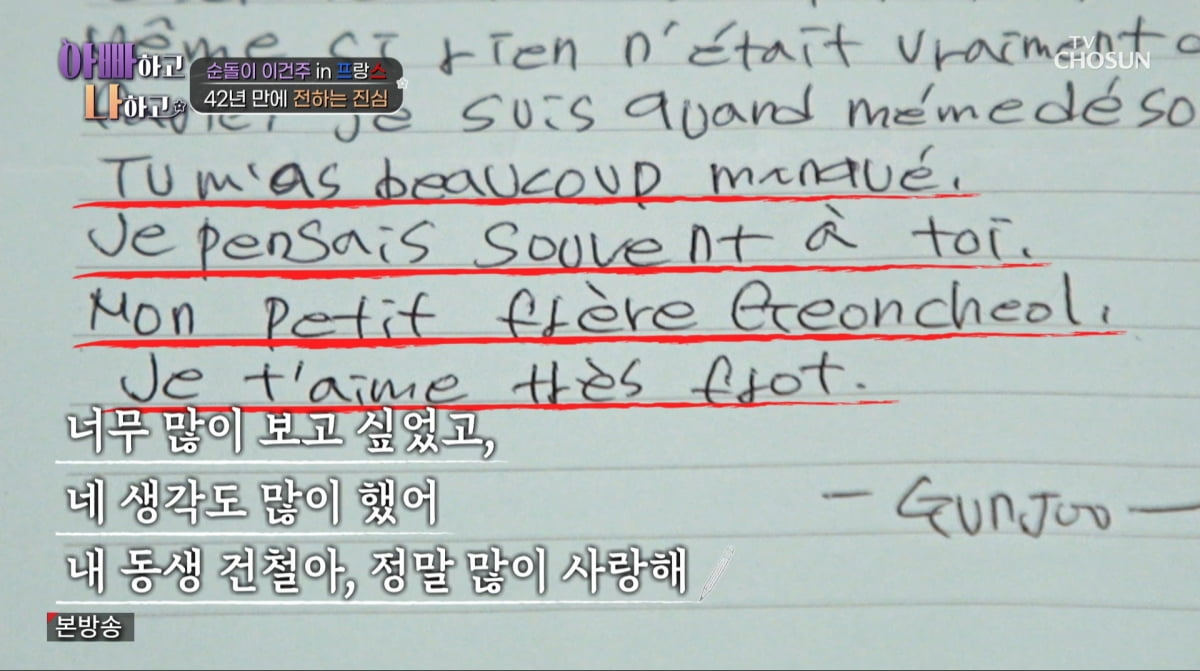 même si rien n'était vraiment
TV CHOSUN
아빠하고
나하고
순돌이 이건주 in 프랑스
42년 만에 전하는 진심
je suis quand mémedéso
Tu m'as beaucoup manqué.
Je pensais souvent à toi.
Mon petit frère Geoncheol.
Je t'aime très frot.
너무 많이 보고 싶었고,
네 생각도 많이 했어
- GUNJOO -
내 동생 건철아, 정말 많이 사랑해
본방송